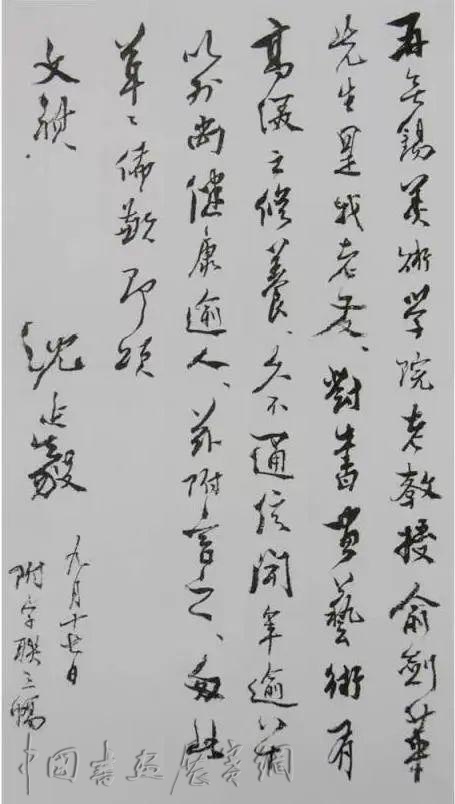 再無錫美術学院老教授俞劍華
先生是我老友、對書画藝術有
高深之修養、久不通信聞年逾八旬
以外尚健康逾人、茲附言之、匆此
草々佈歉即頌
文祺
沈延毅
九月十七日
附字联三幅
中國書法展賽網